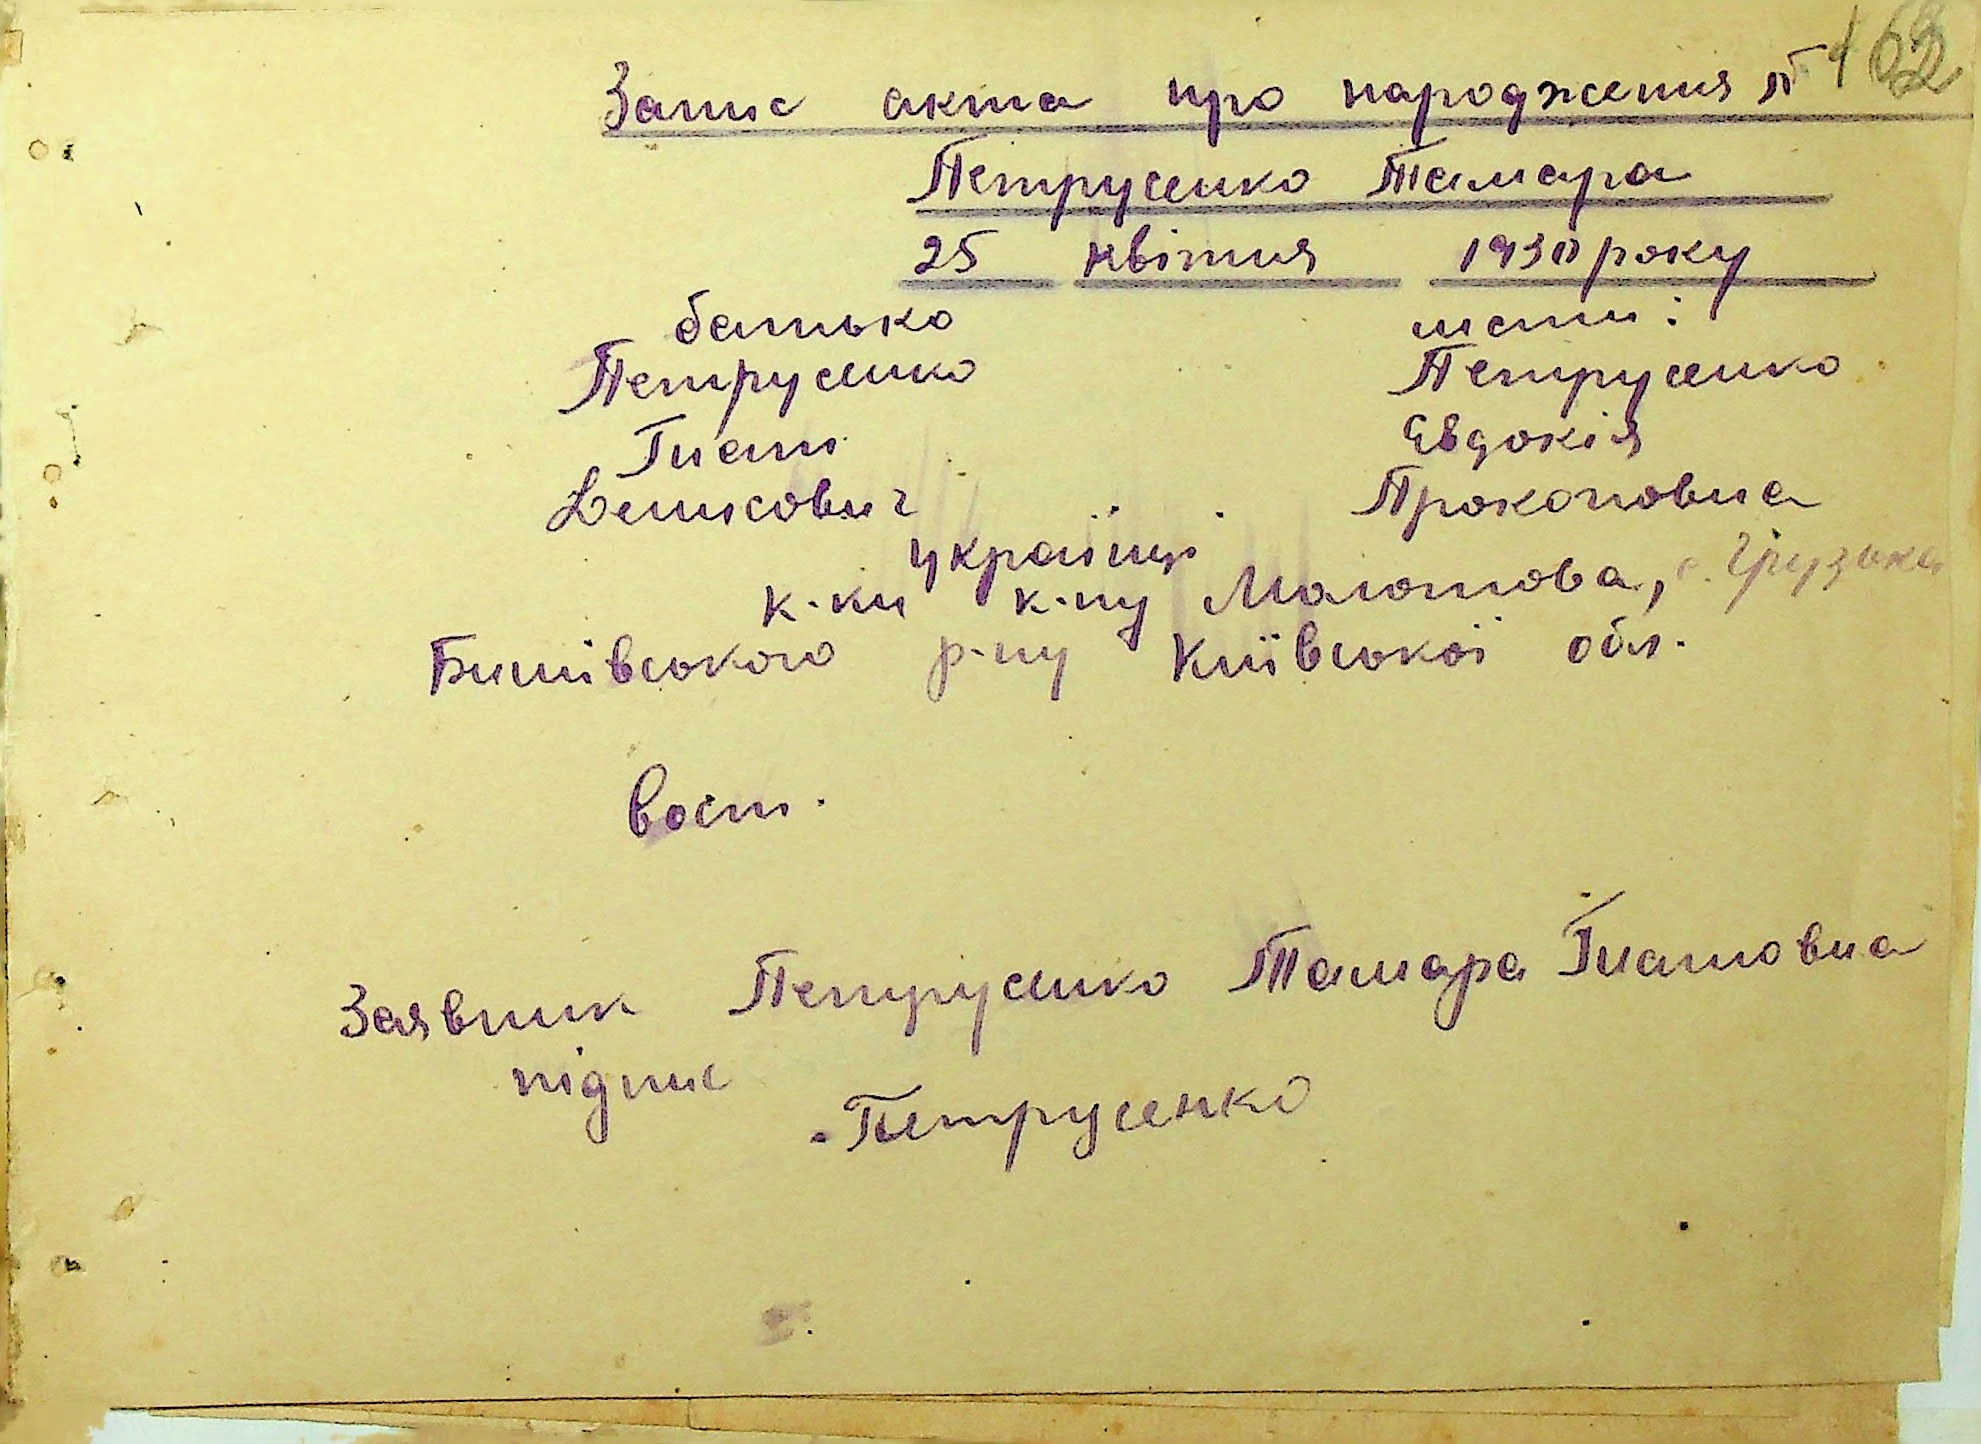 Запис акта про народження № 1
Петрусенко Тамара
25 квітня 1930 року
батько мати:
Петрусенко Петрусенко
Гнат Євдокія
Денисович Прокоповна
українці
к-ки к-пу Молотова, с. Грузька
Бишівського р-ну Київської обл.
вост.
Заявник Петрусенко Тамара Гнатовна
підпис
Петрусенко